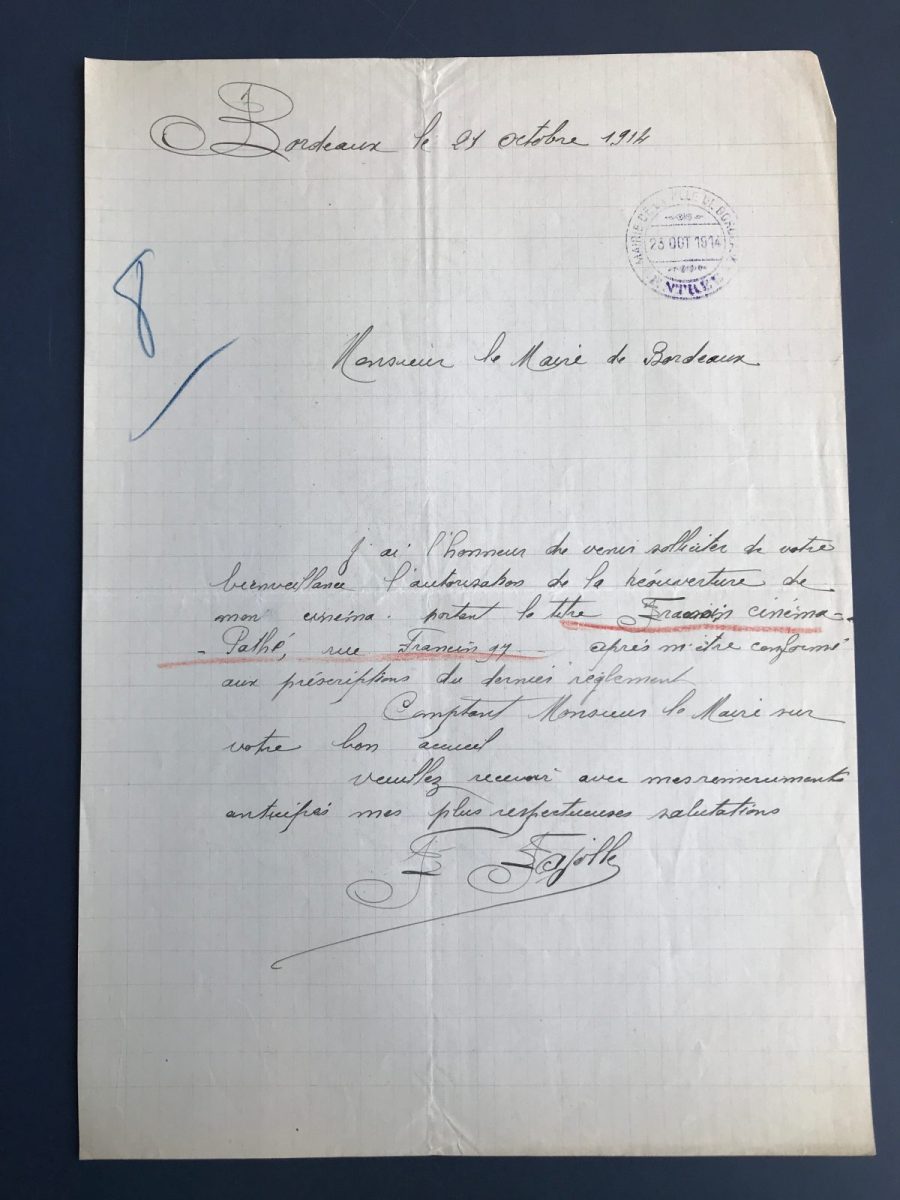 Bordeaux le 21 octobre 1914
MAIRIE DE LA VILLE DE BORDEAUX
23 OCT 1914
ENTRÉE
8
Monsieur le Maire de Bordeaux
J'ai l'honneur de venir solliciter de votre
bienveillance l'autorisation de la réouverture de
mon cinéma. portant le titre Francin cinéma-
- Pathé, rue Francin 97 - après m'être conformé
aux préscriptions du dernier réglement
Comptant Monsieur le Maire sur
votre bon accueil
veuillez recevoir avec mes remerciments
anticipés mes plus respectueuses salutations